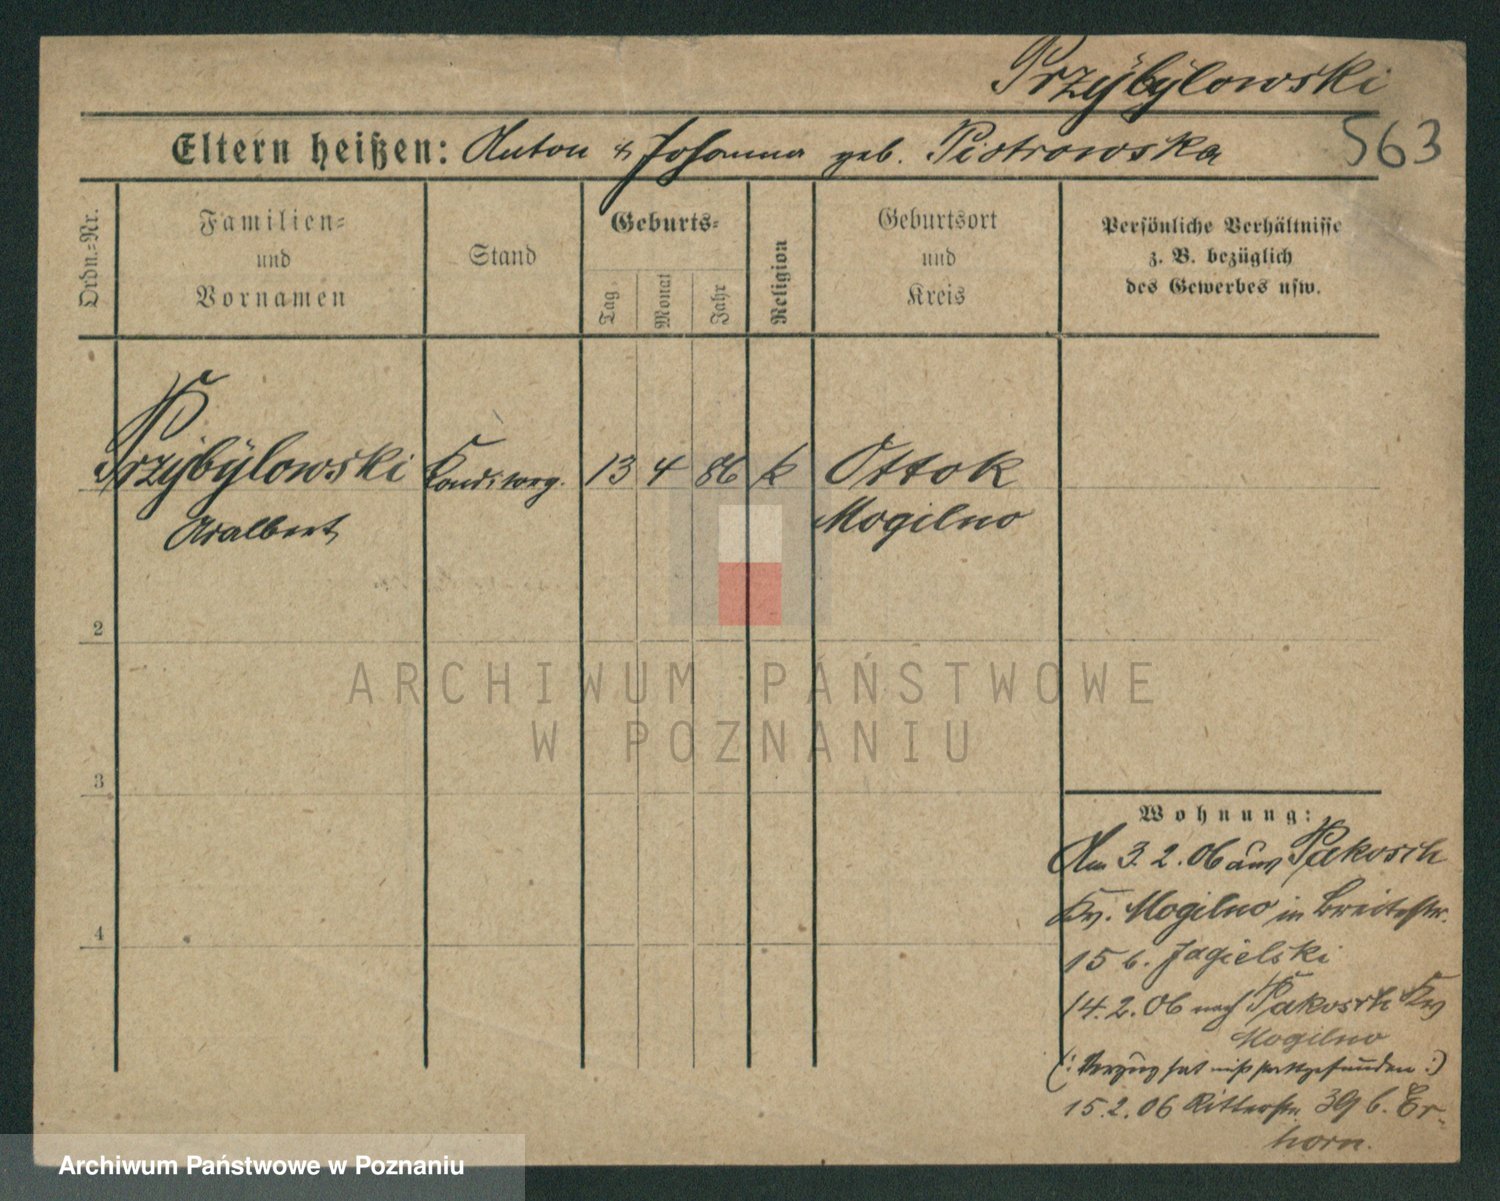 Przybylowski
563
Eltern heißen: Anton & Johanna geb. Piotrowska
Ordn.=Nr.
Familien=
und
Vornamen
Stand
Geburts=
Tag
Monat
Jahr
Religion
Geburtsort
und
Kreis
Persönliche Verhältnisse
z. B. bezüglich
des Gewerbes usw.
Przybylowski
Adalbert
13 4 86 k
Ottok
Mogilno
2
3
4
Wohnung:
Am 3. 2. 06 aus Pakosch
Kr. Mogilno in Breitestr.
15 b. Jagielski
14. 2. 06 nach Pakosch Kr
Mogilno
(: Verzug hat nicht stattgefunden :)
15. 2. 06 Ritterstr. 39 b. Er-
horn.
ARCHIWUM PAŃSTWOWE
W POZNANIU
Archiwum Państwowe w Poznaniu